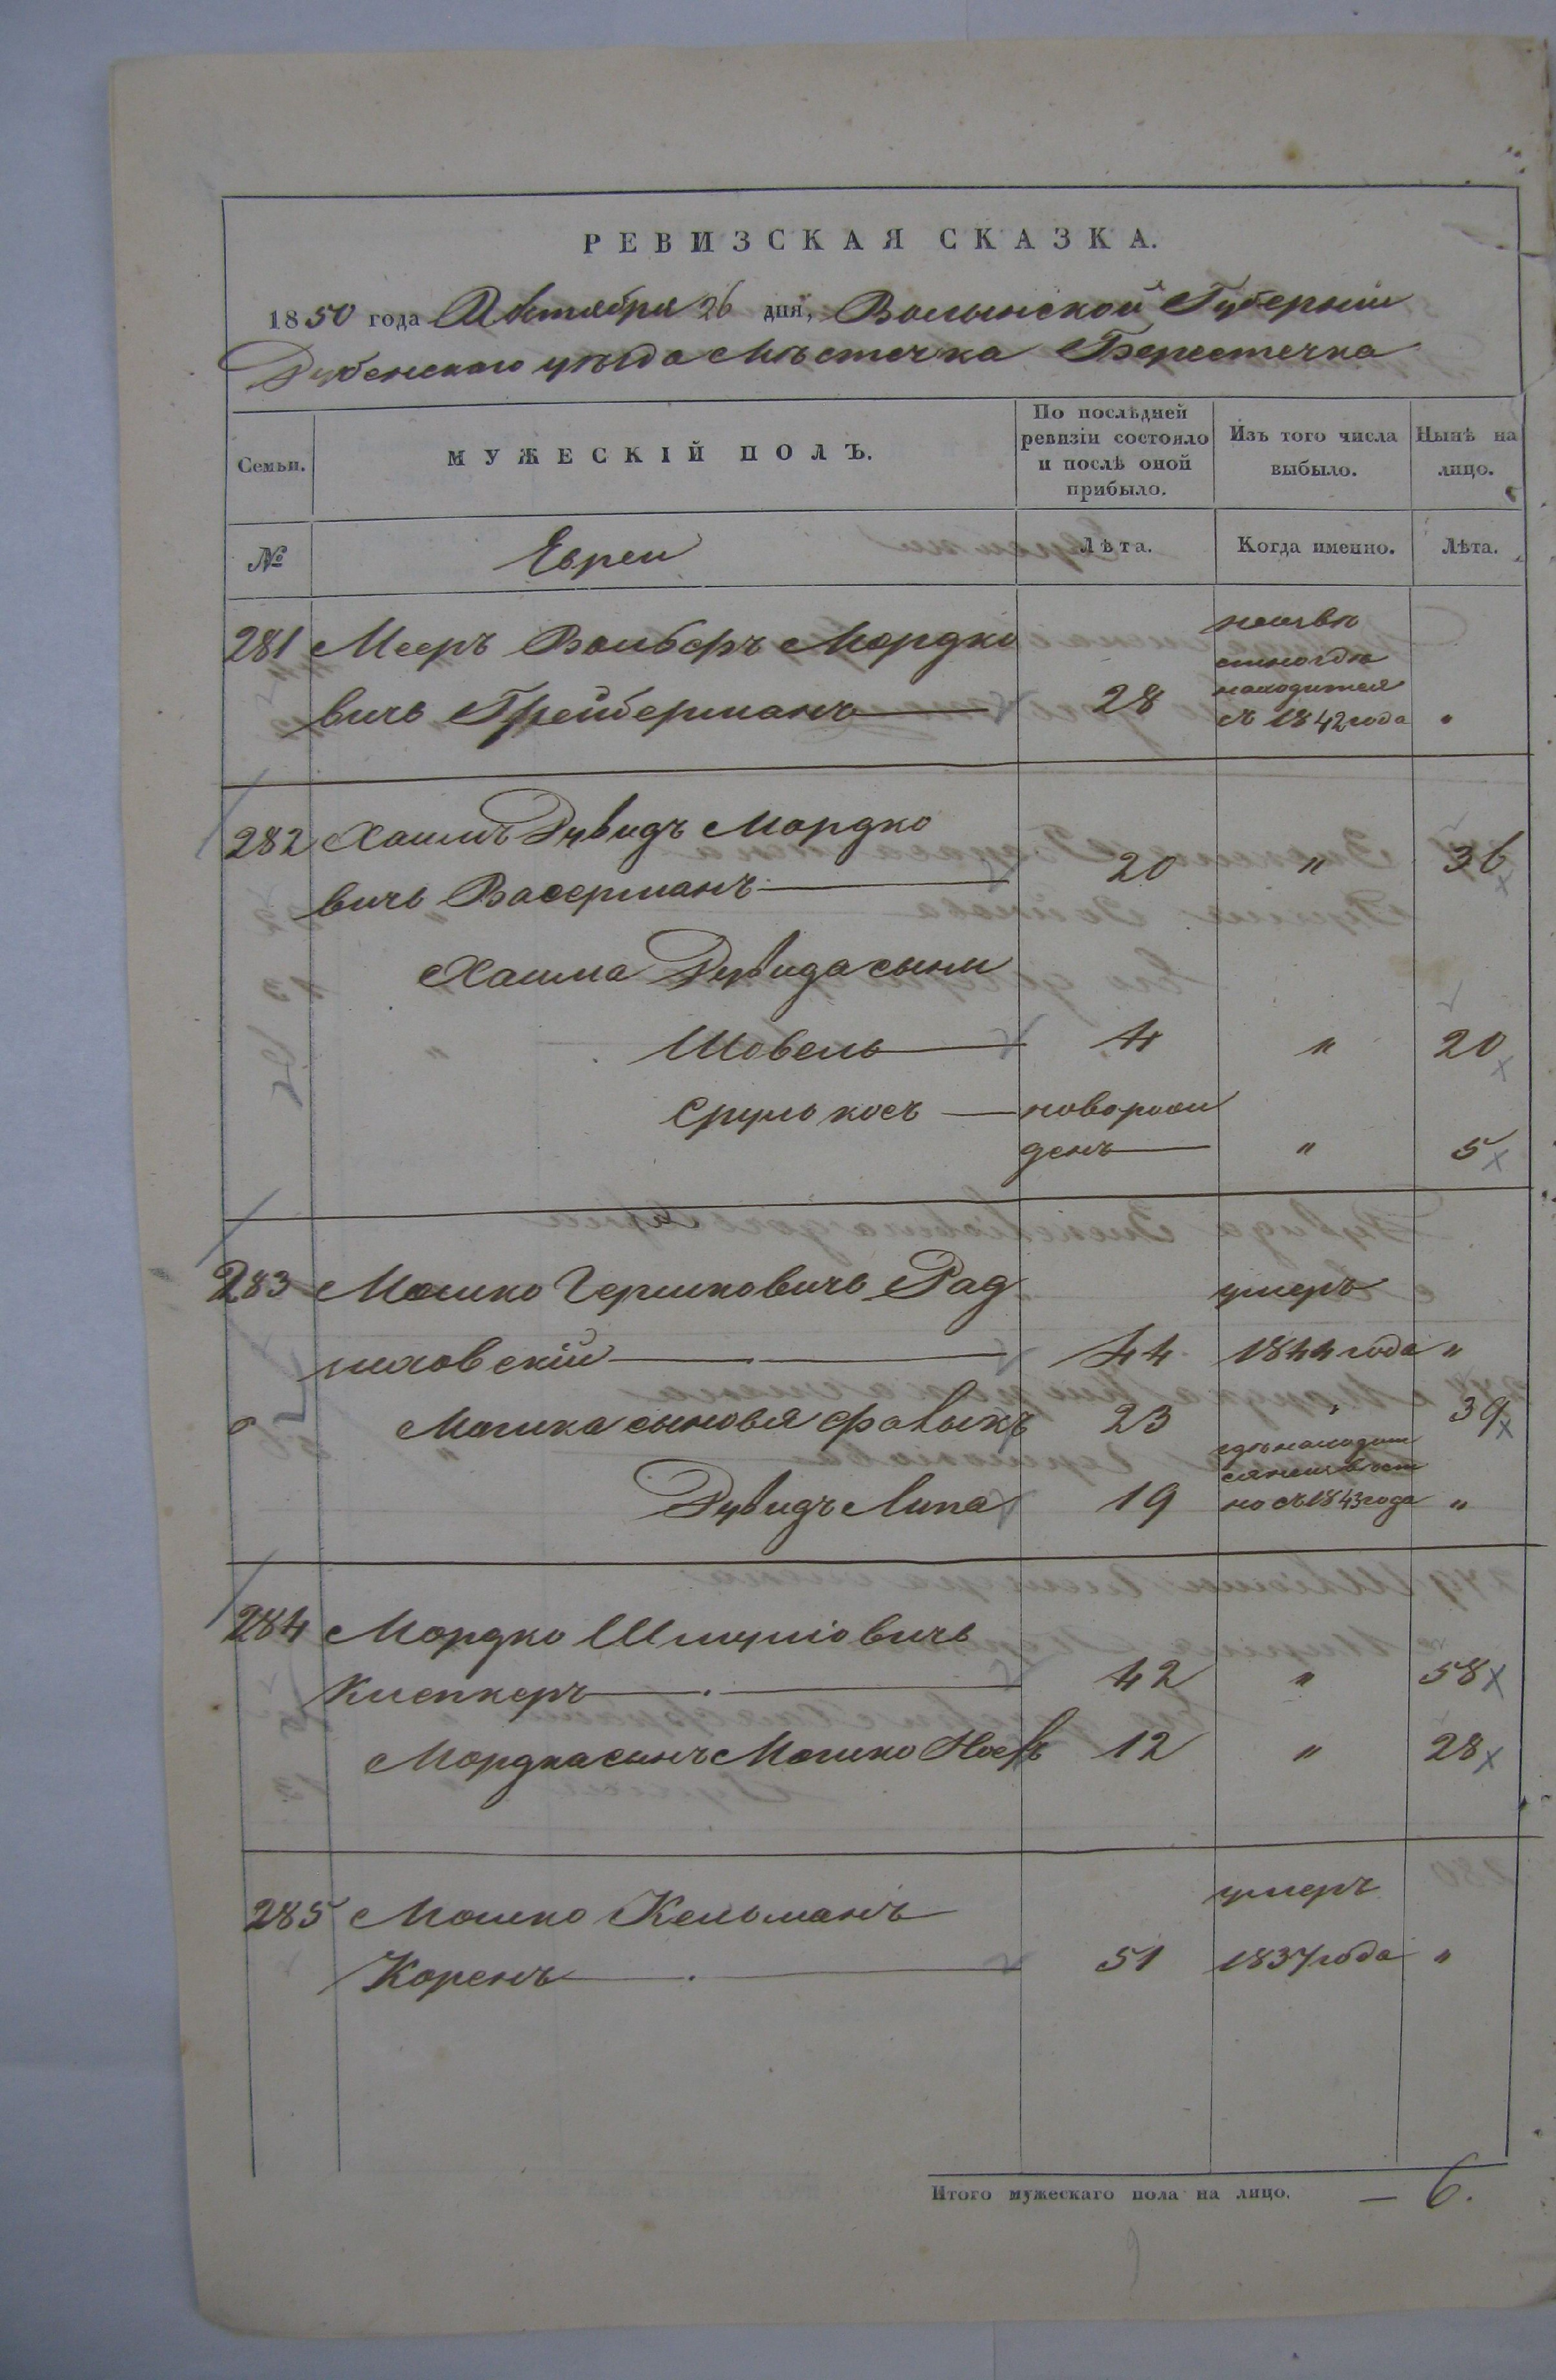 РЕВИЗСКАЯ СКАЗКА.
1850 года Октября 26 дня, Волынской Губерніи
Дубенскаго уѣзда Мѣстечка Берестечка
Семьи.
МУЖЕСКІЙ ПОЛЪ.
По послѣдней ревизіи состояло и послѣ оной прибыло.
Изъ того числа выбыло.
Нынѣ на лицо.
№ Евреи Лѣта. Когда именно. Лѣта.
неизвѣ
281 Мееръ Вольфъ Мордко
стно гдѣ
находится
вичь Грейберманъ 28 съ 1842 года "
282 Хаимъ Дувидъ Мордко
20 " 36
вичь Васерманъ
Хаима Дувида сыны
Шовель 4 " 20
Сруль новорож
денъ " 5
283 Мошко Гершковичь Рад умеръ
зиховскій 44 1844 года "
Мошка сыновья 23 " 39
гдѣ находит
ся неизвѣст
Дувидъ Липа 19 но съ 1843 года "
284 Мордко Шмуліовичь
Клепкеръ 42 " 58
Мордка сынъ Мошко 12 " 28
285 Мошко Кельманъ умеръ
Коренъ 51 1837 года "
Итого мужескаго пола на лицо. — 6.